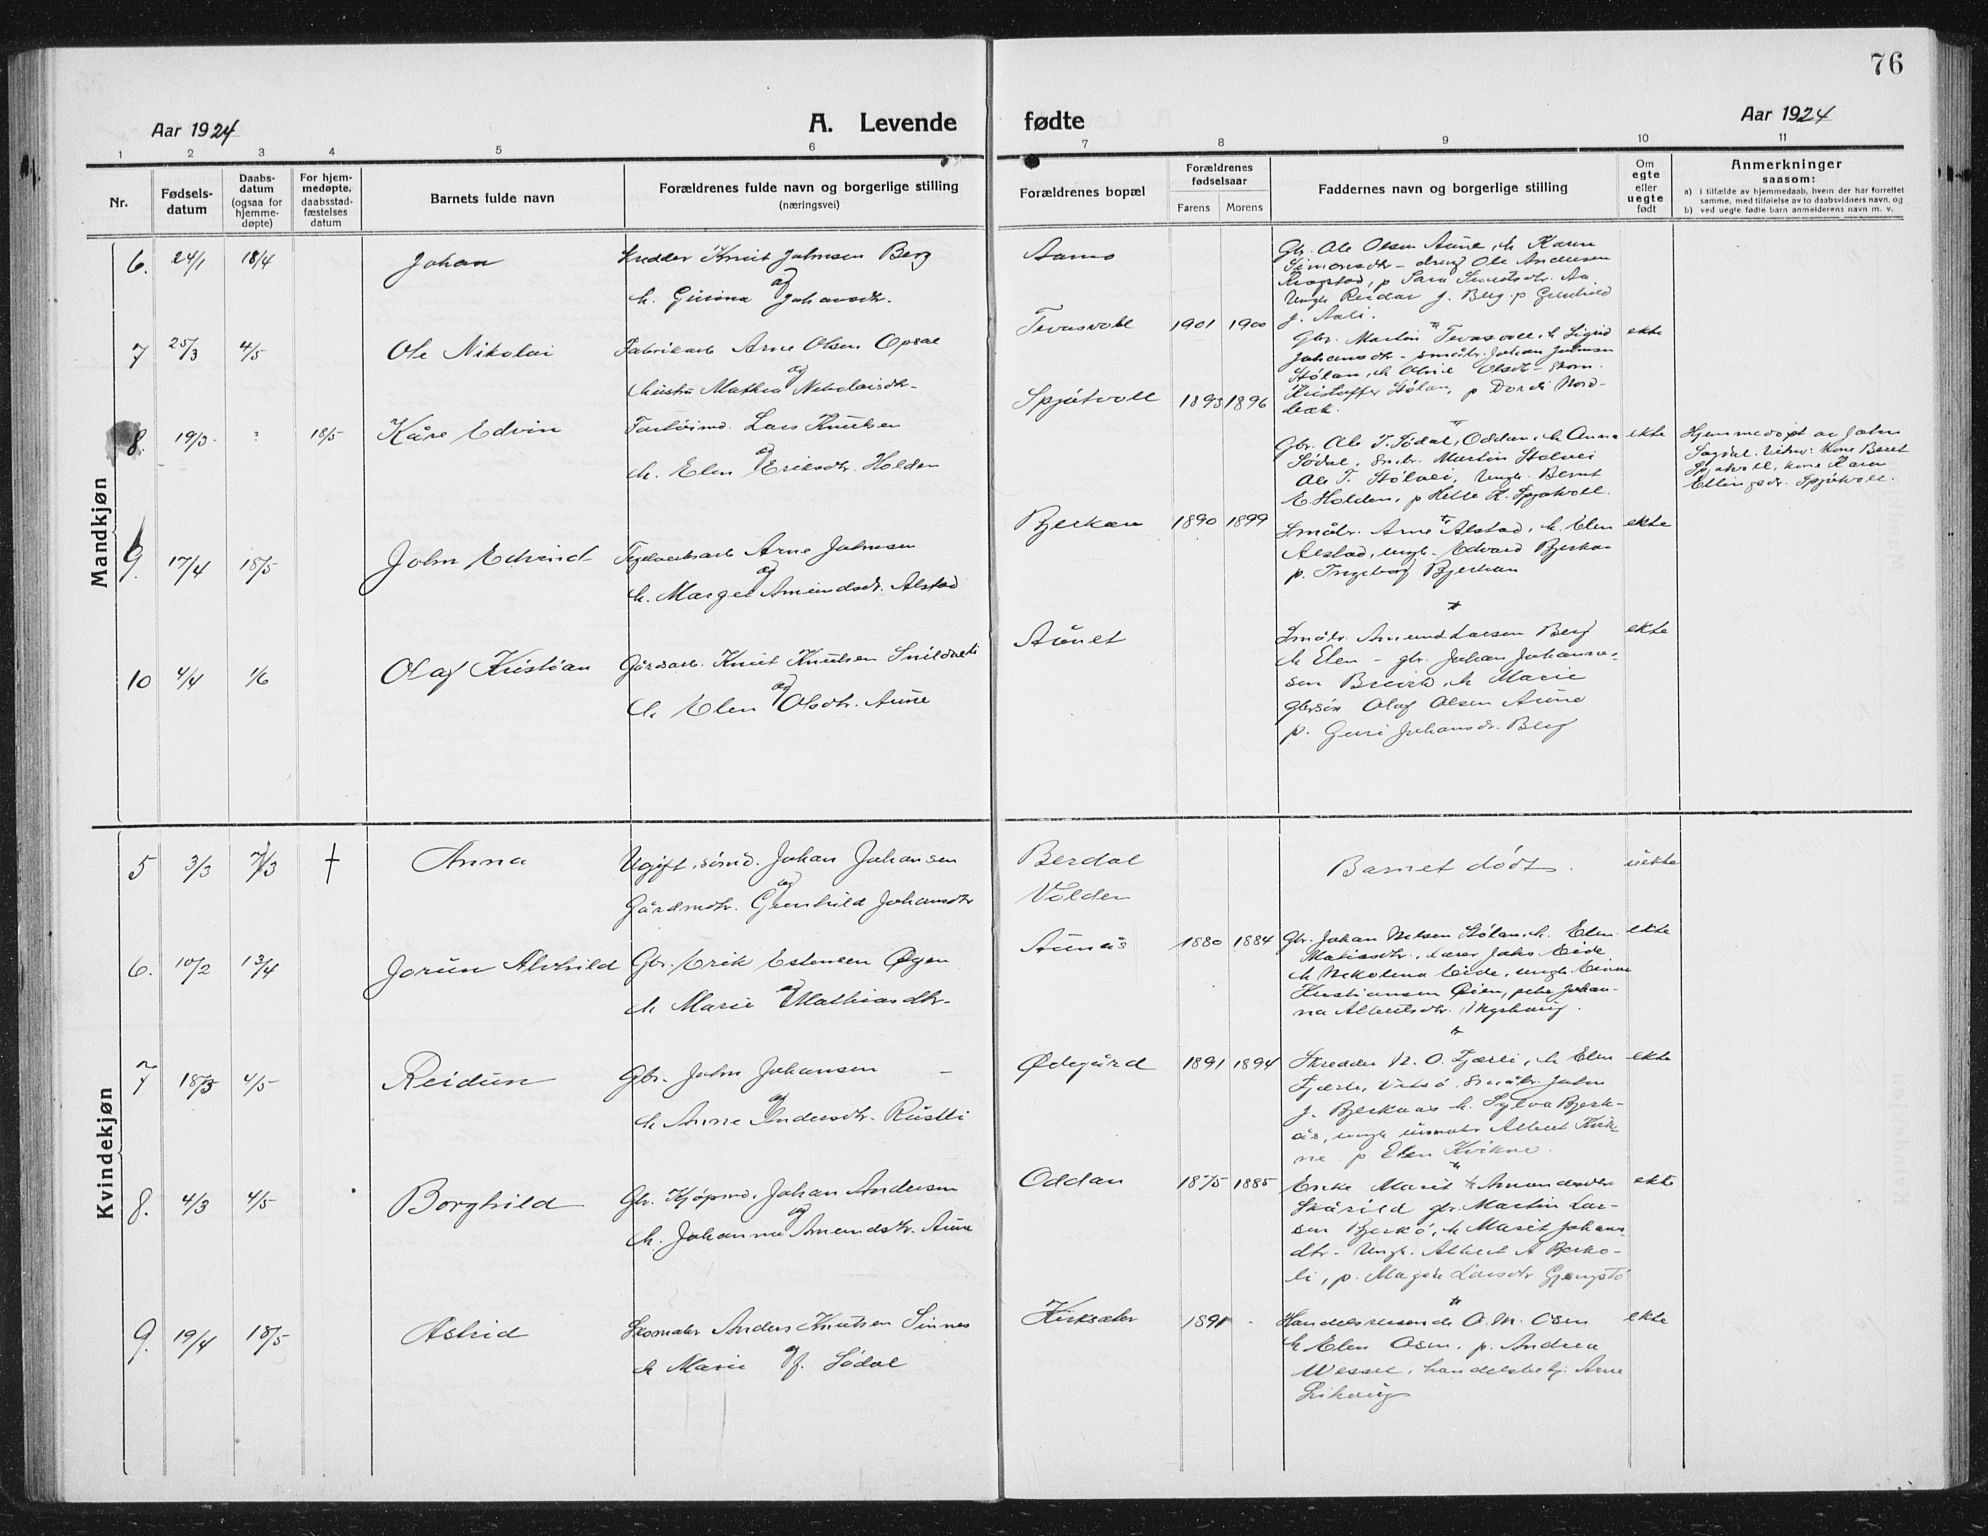 76
Aar 1924
A. Levende fødte
Aar 1924
1 2 3 4 5 6 7 8 9 10 11
Nr.
Fødsels-
datum
Daabs-
datum
(ogsaa for
hjemme-
døpte)
For hjem-
medøpte,
daabsstad-
fæstelses
datum
Barnets fulde navn
Forældrenes fulde navn og borgerlige stilling
(næringsvei)
Forældrenes bopæl
Forældrenes
fødselsaar
Farens Morens
Faddernes navn og borgerlige stilling
Om
egte
eller
uegte
født
Anmerkninger
saasom:
a) I tilfælde av hjemmedaab, hvem der har forrettet
samme, med tilføielse av to daabsvidners navn, og
b) ved uegte fødte barn anmelderens navn m. v.
Mandkjøn
6. 24/1 18/4 Johan
Skredder Knut Johnsen Berg
og
h. Gurina Johansdtr.
Gbr. Ole Olsen Aune, h. Karen
Simonsdtr - dreng Ole Andersen
p Sara
Ungk Reidar J. Berg, p Gunhild
J.
7 25/3 4/5 Ole Nikolai
Fabrikarb Arne Olsen Opsal
og
Mathea Nikolaisdtr
Tevasvoll 1901 1900
Gbr. Martin Tevasvoll, h. Sigrid
Johansdtr - småbr. Johan Johnsen
Stølan, h. Olsdtr
Kristoffer Stølan, p Dordi Nord-
bæk.
ekte
8. 19/3 ? 18/5 Kåre Edvin
Lars Knutsen
og
h. Elen Eriksdtr. Holden
Spjøtvoll 1893 1896
Gbr. Ole T. Sødal, Oddan, h. Anna
Sødal, Smbr. Martin Stølvei
Ole T. Stølvei, Ungk. Bernt
E Holden, p Spjøtvoll
ekte
Hjemmedøpt av John
Sagdal. Kone Beret
Spjøtvoll, kone Karen
Ellingsdr. Spjøtvoll.
9. 17/4 18/5 John Edvind
Teglverksarb Arne Johnsen
og
h. Marget Amundsdr. Alstad
Bjerkan 1890 1899
Småbr. Arne Alstad, h. Elen
Alstad, ungk. Edvard Bjerkan
p. Ingeborg Bjerkan
ekte
10 4/4 1/6 Olaf Kristian
Gårdsarb. Knut Knutsen Snildveli
og
h. Elen Olsdtr. Aune
Aunet
Småbr. Amund Larsen Berg
h Elen - gbr. Johan Johanne-
sen h Marie
gbrsøn Olaf Olsen Aune
p. Guri Johansdr. Berg
ekte
Kvindekjøn
5 3/3 7/3 † Anna
Ugift. sømd. Johan Johansen
og
Gårdmdtr. Gunhild Johansdtr
Berdal
Volden
Barnet dødt.
uekte
6. 10/2 13/4 Jorun Alvhild
Gbr. Erik Estensen Øyen
og
h Marie Mathiasdtr.
Aunås 1880 1884
Gbr. Johan Nilsen Stølan, h. Elen
Matiasdtr., Lærer Jahs. Eide
h Nikolina Eide, ungk. Einar
Kristiansen Øien, pike Johan-
na Albertsdtr. Myshaug.
ekte
7 18/3 4/5 Reidun
Gbr. John Johansen
og
h Anne Andersdtr. Rustli
Ødegård 1891 1894
Skredder N. O. Fjærli, h Elen
Fjærli, Vitsø, Småbr. John
J. Bjerkaas h. Sylva Bjerk-
ås, ungk urmaker Albert Kvik-
ne p Elen Kvikne
ekte
8. 4/3 4/5 Borghild
Gbr. Kjøpmd. Johan Andersen
og
h. Johanna Amundsdtr. Aune
Oddan 1875 1885
Enke Marit Amundsdtr
Skårild gbr. Martin Lar-
sen h Marit Johans-
dtr - Ungk. Albert A Bjerkø-
li, p. Larsdtr Gjengstø
ekte
9. 19/4 18/5 Astrid
Skomaker Anders Knutsen Sinnes
og
h Marie f. Sødal
Kirksæter 1891 -
Handelsreisende O. M. Osen
h Elen Osen, p. Andrea
Wessel, handelsbetj. Arne
ekte